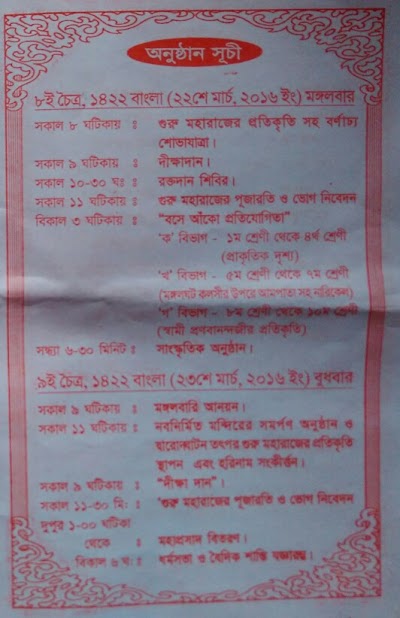 অনুষ্ঠান সূচী
৮ই চৈত্র, ১৪২২ বাংলা (২২শে মার্চ, ২০১৬ ইং) মঙ্গলবার
সকাল ৮ ঘটিকায় : গুরু মহারাজের প্রতিকৃতি সহ বর্ণাঢ্য
শোভাযাত্রা।
সকাল ৯ ঘটিকায় : দীক্ষাদান।
সকাল ১০-৩০ ঘঃ : রক্তদান শিবির।
সকাল ১১ ঘটিকায় : গুরু মহারাজের পূজারতি ও ভোগ নিবেদন
বিকাল ৩ ঘটিকায় : "বসে আঁকো প্রতিযোগিতা"
'ক' বিভাগ - ১ম শ্রেণী থেকে ৪র্থ শ্রেণী
(প্রাকৃতিক দৃশ্য)
'খ' বিভাগ - ৫ম শ্রেণী থেকে ৭ম শ্রেণী
(মঙ্গলঘট কলসীর উপরে আমপাতা সহ নারিকেল)
'গ' বিভাগ - ৮ম শ্রেণী থেকে ১০ম শ্রেণী
(স্বামী প্রণবানন্দজীর প্রতিকৃতি)
সন্ধ্যা ৬-৩০ মিনিট : সাংস্কৃতিক অনুষ্ঠান।
৯ই চৈত্র, ১৪২২ বাংলা (২৩শে মার্চ, ২০১৬ ইং) বুধবার
সকাল ৯ ঘটিকায় : মঙ্গলবারি আনয়ন।
সকাল ১১ ঘটিকায় : নবনির্মিত মন্দিরের সমর্পণ অনুষ্ঠান ও
দ্বারোদ্ঘাটন তৎপর গুরু মহারাজের প্রতিকৃতি
স্থাপন এবং হরিনাম সংকীর্ত্তন।
সকাল ৯ ঘটিকায় : "দীক্ষা দান"।
সকাল ১১-৩০ মি: : 'গুরু মহারাজের পূজারতি ও ভোগ নিবেদন
দুপুর ১-০০ ঘটিকা
থেকে : মহাপ্রসাদ বিতরণ।
বিকাল ৬ ঘঃ : ধর্মসভা ও বৈদিক শান্তি যজ্ঞারম্ভ।